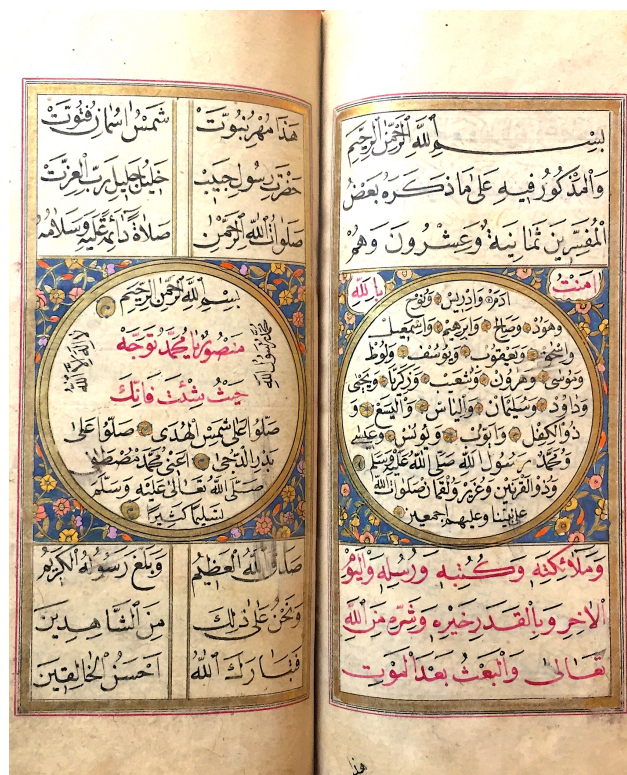 بسم الله الرحمن الرحيم
والمذكور فيه على ما ذكره بعض
المفسرين ثمانية وعشرون وهم
امنت
بالله
ادم وادريس ونوح
وهود وصالح وابرهيم واسمعيل
واسحق ويعقوب ويوسف ولوط
وموسى وهرون وشعيب وزكريا ويحيى
وداود وسليمان والياس واليسع و
ذو الكفل وايوب ويونس وعيسى
ومحمد رسول الله صلى الله عليه وسلم
وذو القرنين وعزير ولقمان صلوات الله
على نبينا وعليهم اجمعين
وملائكته وكتبه ورسله واليوم
الاخر وبالقدر خيره وشره من الله
تعالى والبعث بعد الموت
هذا
هذا مهر نبوت
شمس اسمان فتوت
حضرت رسول حبيب
خليل جليل رب العزت
صلوات الله الرحمن
صلاة دائمة عليه وسلامه
بسم الله الرحمن الرحيم
محمد رسول الله
لا اله الا الله
منصور يا محمد توجه
حيث شئت فانك
صلوا على شمس الهدى صلوا على
بدر الدجى اعنى محمد مصطفى
صلى الله تعالى عليه وسلم
تسليما كثيرا
صدق الله العظيم
وبلغ رسوله الكريم
ونحن على ذلك
من الشاهدين
فتبارك الله
احسن الخالقين